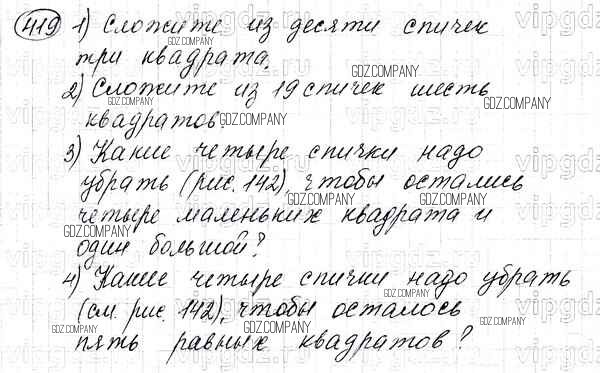 419 1) Сложите из десяти спичек
три квадрата.
2) Сложите из 19 спичек шесть
квадратов.
3) Какие четыре спички надо
убрать (рис. 142), чтобы остались
четыре маленьких квадрата и
один большой?
4) Какие четыре спички надо убрать
(см. рис. 142), чтобы осталось
пять равных квадратов?
GDZ.COMPANY
vipgdz.ru